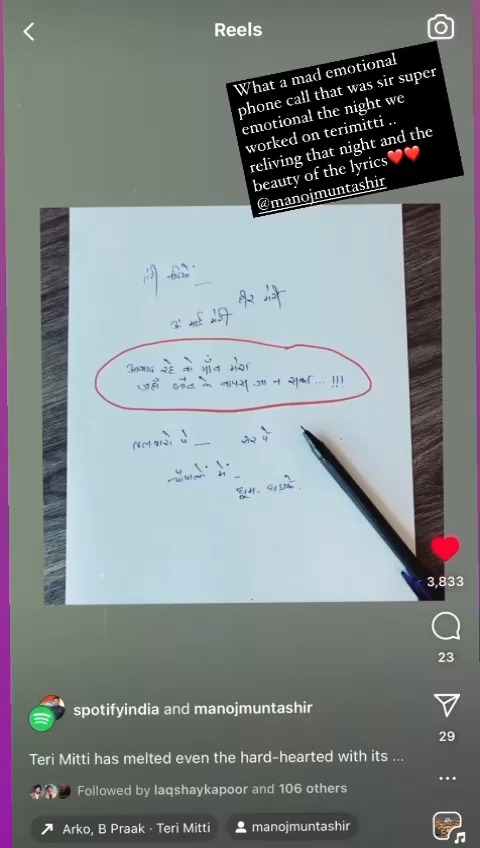 Reels
What a mad emotional
phone call that was sir super
emotional the night we
worked on terimitti ..
reliving that night and the
beauty of the lyrics❤️❤️
@manojmuntashir
तेरी नदियों __
हीर मेरी
ओ माई मेरी
आबाद रहे वो गाँव मेरा
जहाँ लौट के वापस जा न सका...!!!
तलवारों पे __ सर पे
में _
धूम-धड़ाके
3,833
23
29
spotifyindia and manojmuntashir
Teri Mitti has melted even the hard-hearted with its ...
Followed by laqshaykapoor and 106 others
Arko, B Praak · Teri Mitti
manojmuntashir